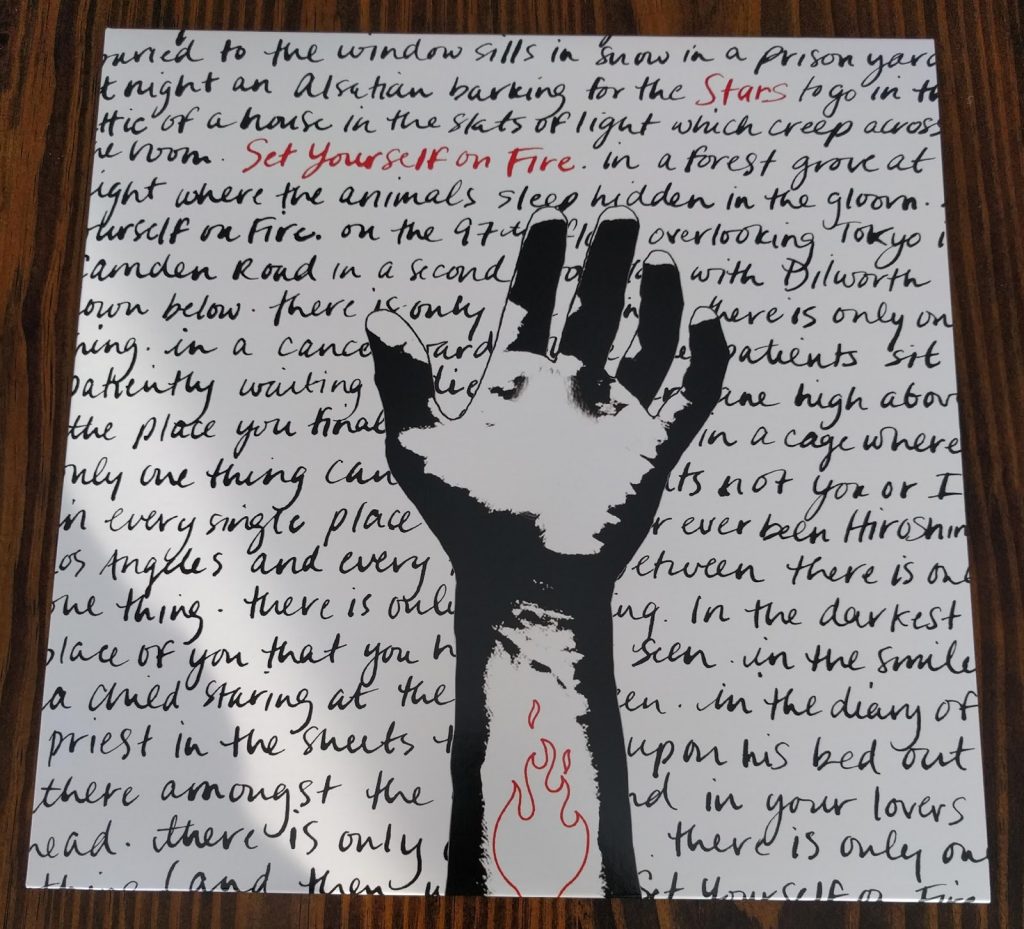 buried to the window sills in snow in a prison yard
t night an Alsatian barking for the Stars to go in th
ttic of a house in the slats of light which creep across
he room. Set Yourself on Fire. in a forest grove at
ight where the animals sleep hidden in the gloom.
ourself on Fire. on the 97th flo overlooking Tokyo i
Camden Road in a second with Dilworth
own below. there is only there is only on
hing. in a cance ard patients sit
patiently waiting die ane high abov
the plate you final in a cage where
only one thing can its not you or I
in every single place r ever been Hiroshim
os Angeles and every etween there is one
one thing. there is only ing. In the darkest
place of you that you h seen. in the smile
a child staring at the en. in the diary of
priest in the sheets t upon his bed out
there amongst the nd in your lovers
head. there is only there is only on
thing (and then Set Yourself on Fire